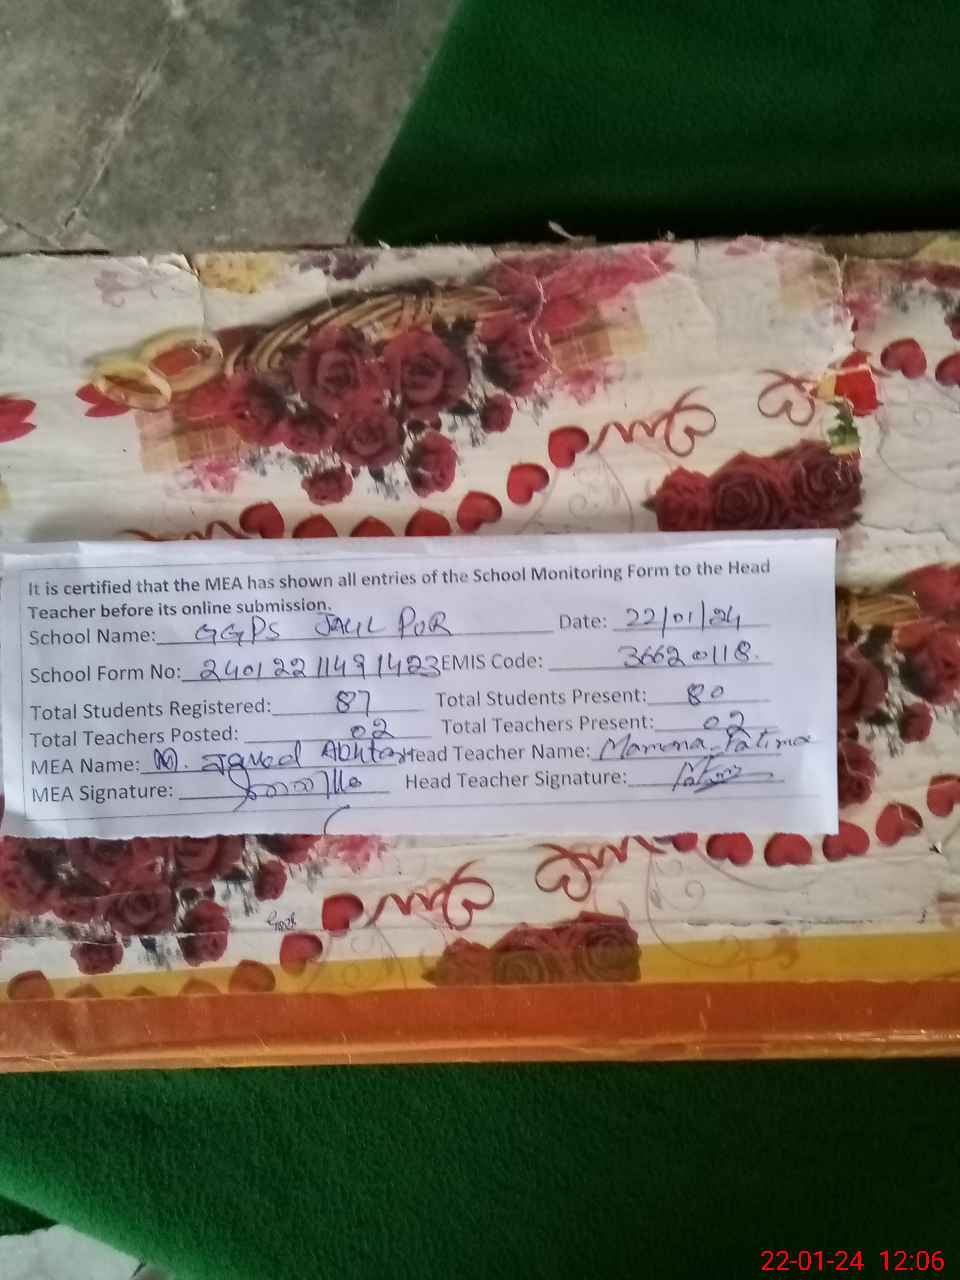 It is certified that the MEA has shown all entries of the School Monitoring Form to the Head
Teacher before its online submission.
School Name: GGPS JALL POR Date: 22/01/24
School Form No: 24012211491423 EMIS Code: 36620118.
Total Students Registered: 87 Total Students Present: 80
Total Teachers Posted: 02 Total Teachers Present: 02
MEA Name: M. Javed Akhtar Head Teacher Name: Mamona Fatima
MEA Signature: Head Teacher Signature:
22-01-24 12:06